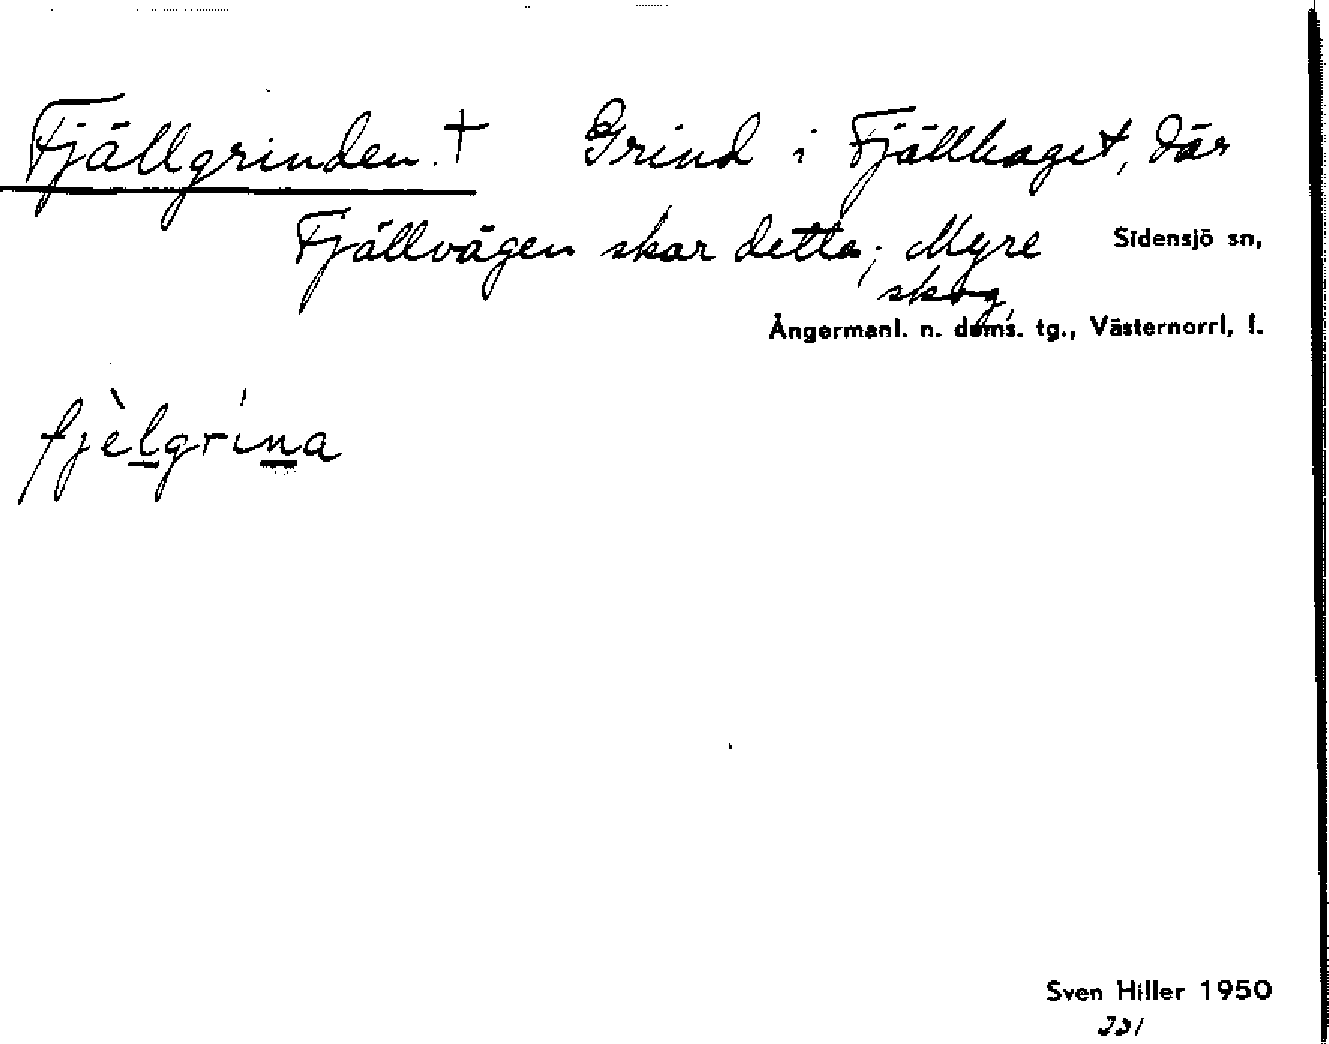 Fjällgrinden. † Grind i Fjällhaget, där
Fjällvägen skar detta; Myre
skog,
Sidensjö sn,
Ångermanl. n. doms. tg., Västernorrl, l.
fjèlgrína
Sven Hiller 1950